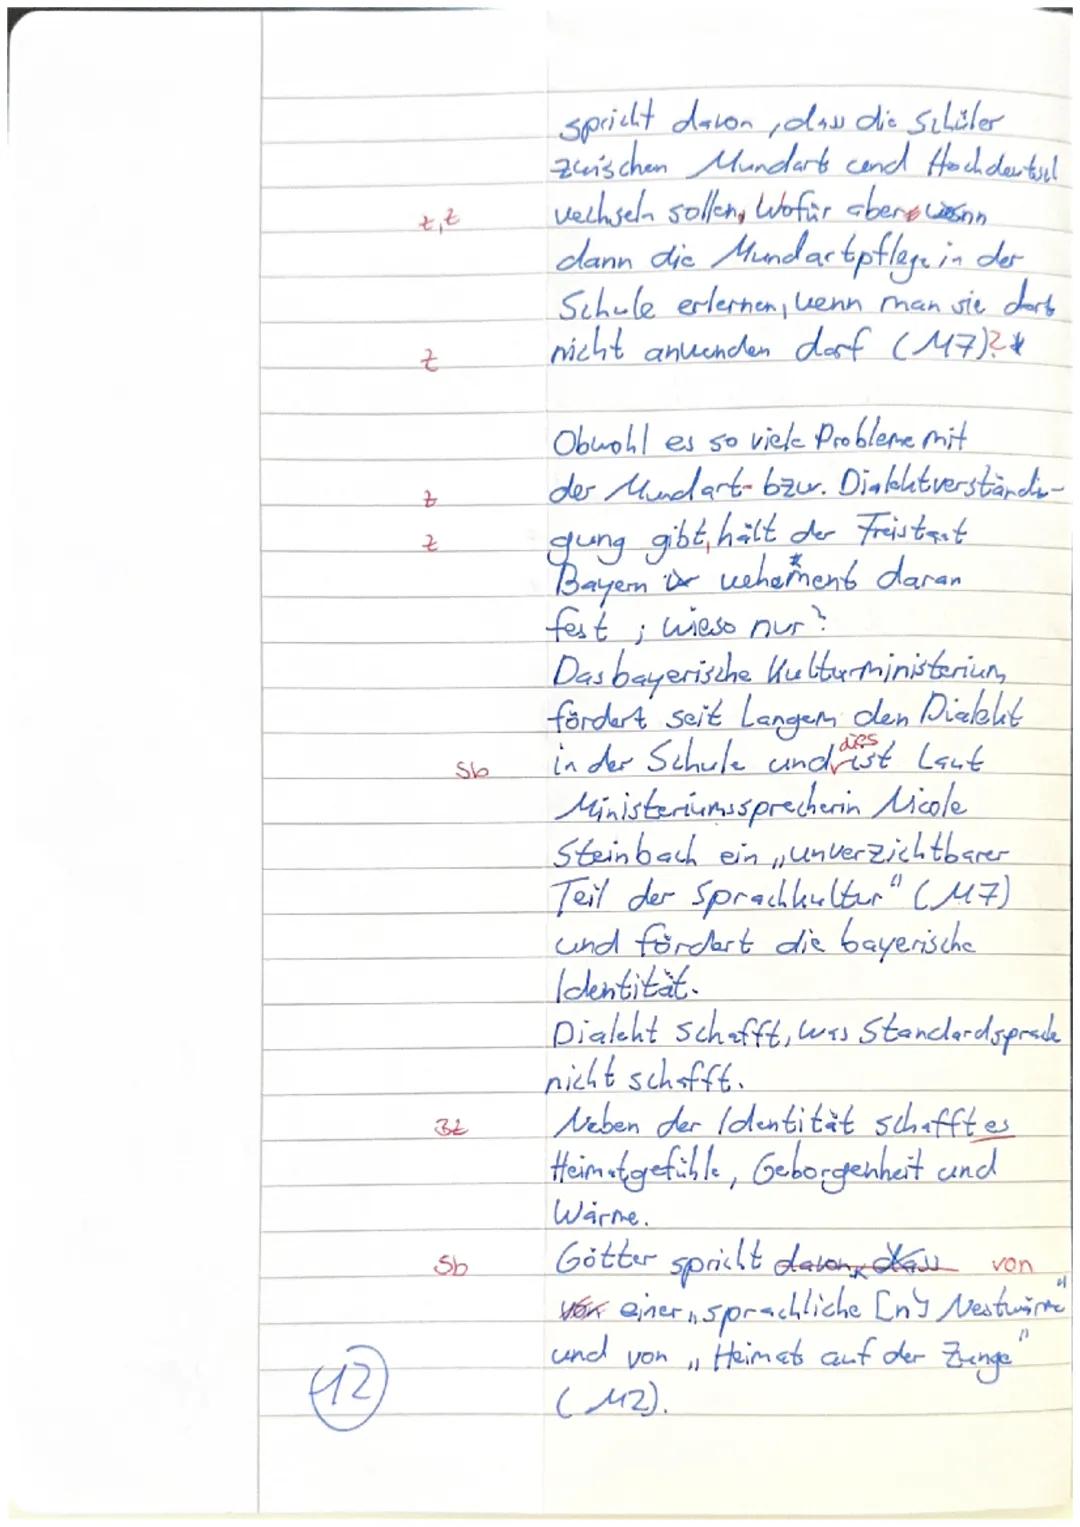 spricht davon, dass die Schüler
zwischen Mundart und Hochdeutsch
z,z wechseln sollen, Wofür aber wenn
dann die Mundartpflege in der
Schule erlernen, wenn man sie dort
z nicht anwenden darf (M7)?*
Obwohl es so viele Probleme mit
z der Mundart- bzw. Dialektverständi-
z gung gibt, hält der Freistaat
Bayern vehement* daran
fest ; wieso nur?
Das bayerische Kulturministerium
fördert seit Langem den Dialekt
Sb in der Schule und dies ist Laut
Ministeriumssprecherin Nicole
Steinbach ein „unverzichtbarer
Teil der Sprachkultur" (M7)
und fördert die bayerische
Identität.
Dialekt schafft, was Standardsprache
nicht schafft.
Bz Neben der Identität schafft es
Heimatgefühle, Geborgenheit und
Wärme.
Sb Götter spricht davon, dass von
von einer „sprachliche [n] Nestwärme"
und von „Heimat auf der Zunge"
(M2).
12